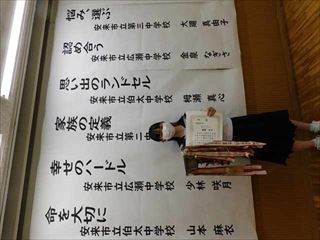 悩み、選ぶ
安来市立第三中学校 大塚 真由子
認め合う
安来市立広瀬中学校 金泉 なぎさ
思い出のランドセル
安来市立伯太中学校 細瀬 真心
家族の定義
安来市立第二
幸せのハードル
安来市立広瀬中学校 少林 咲月
命を大切に
安来市立伯太中学校 山本 麻衣